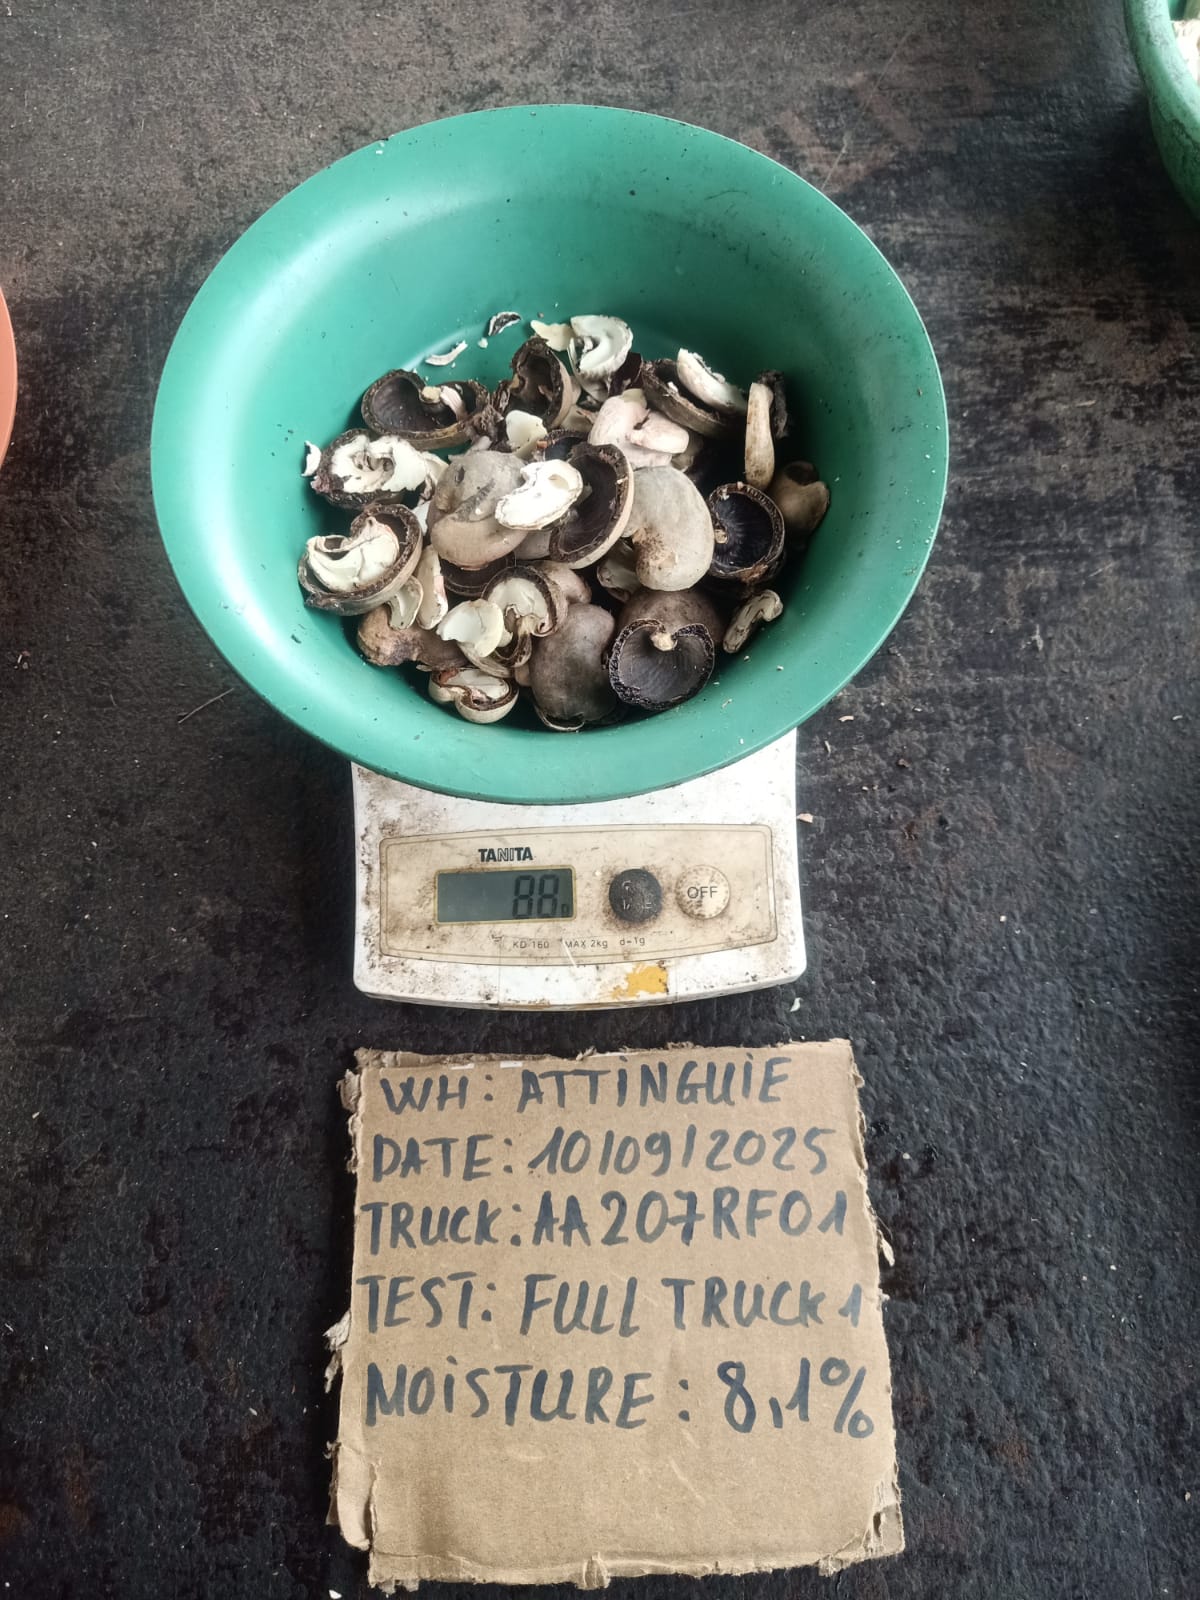 TANITA
88
OFF
KD-160 MAX 2kg d=1g
WH: ATTINGUIE
DATE: 10/09/2025
TRUCK: AA207RF01
TEST: FULL TRUCK 1
MOISTURE: 8,1%